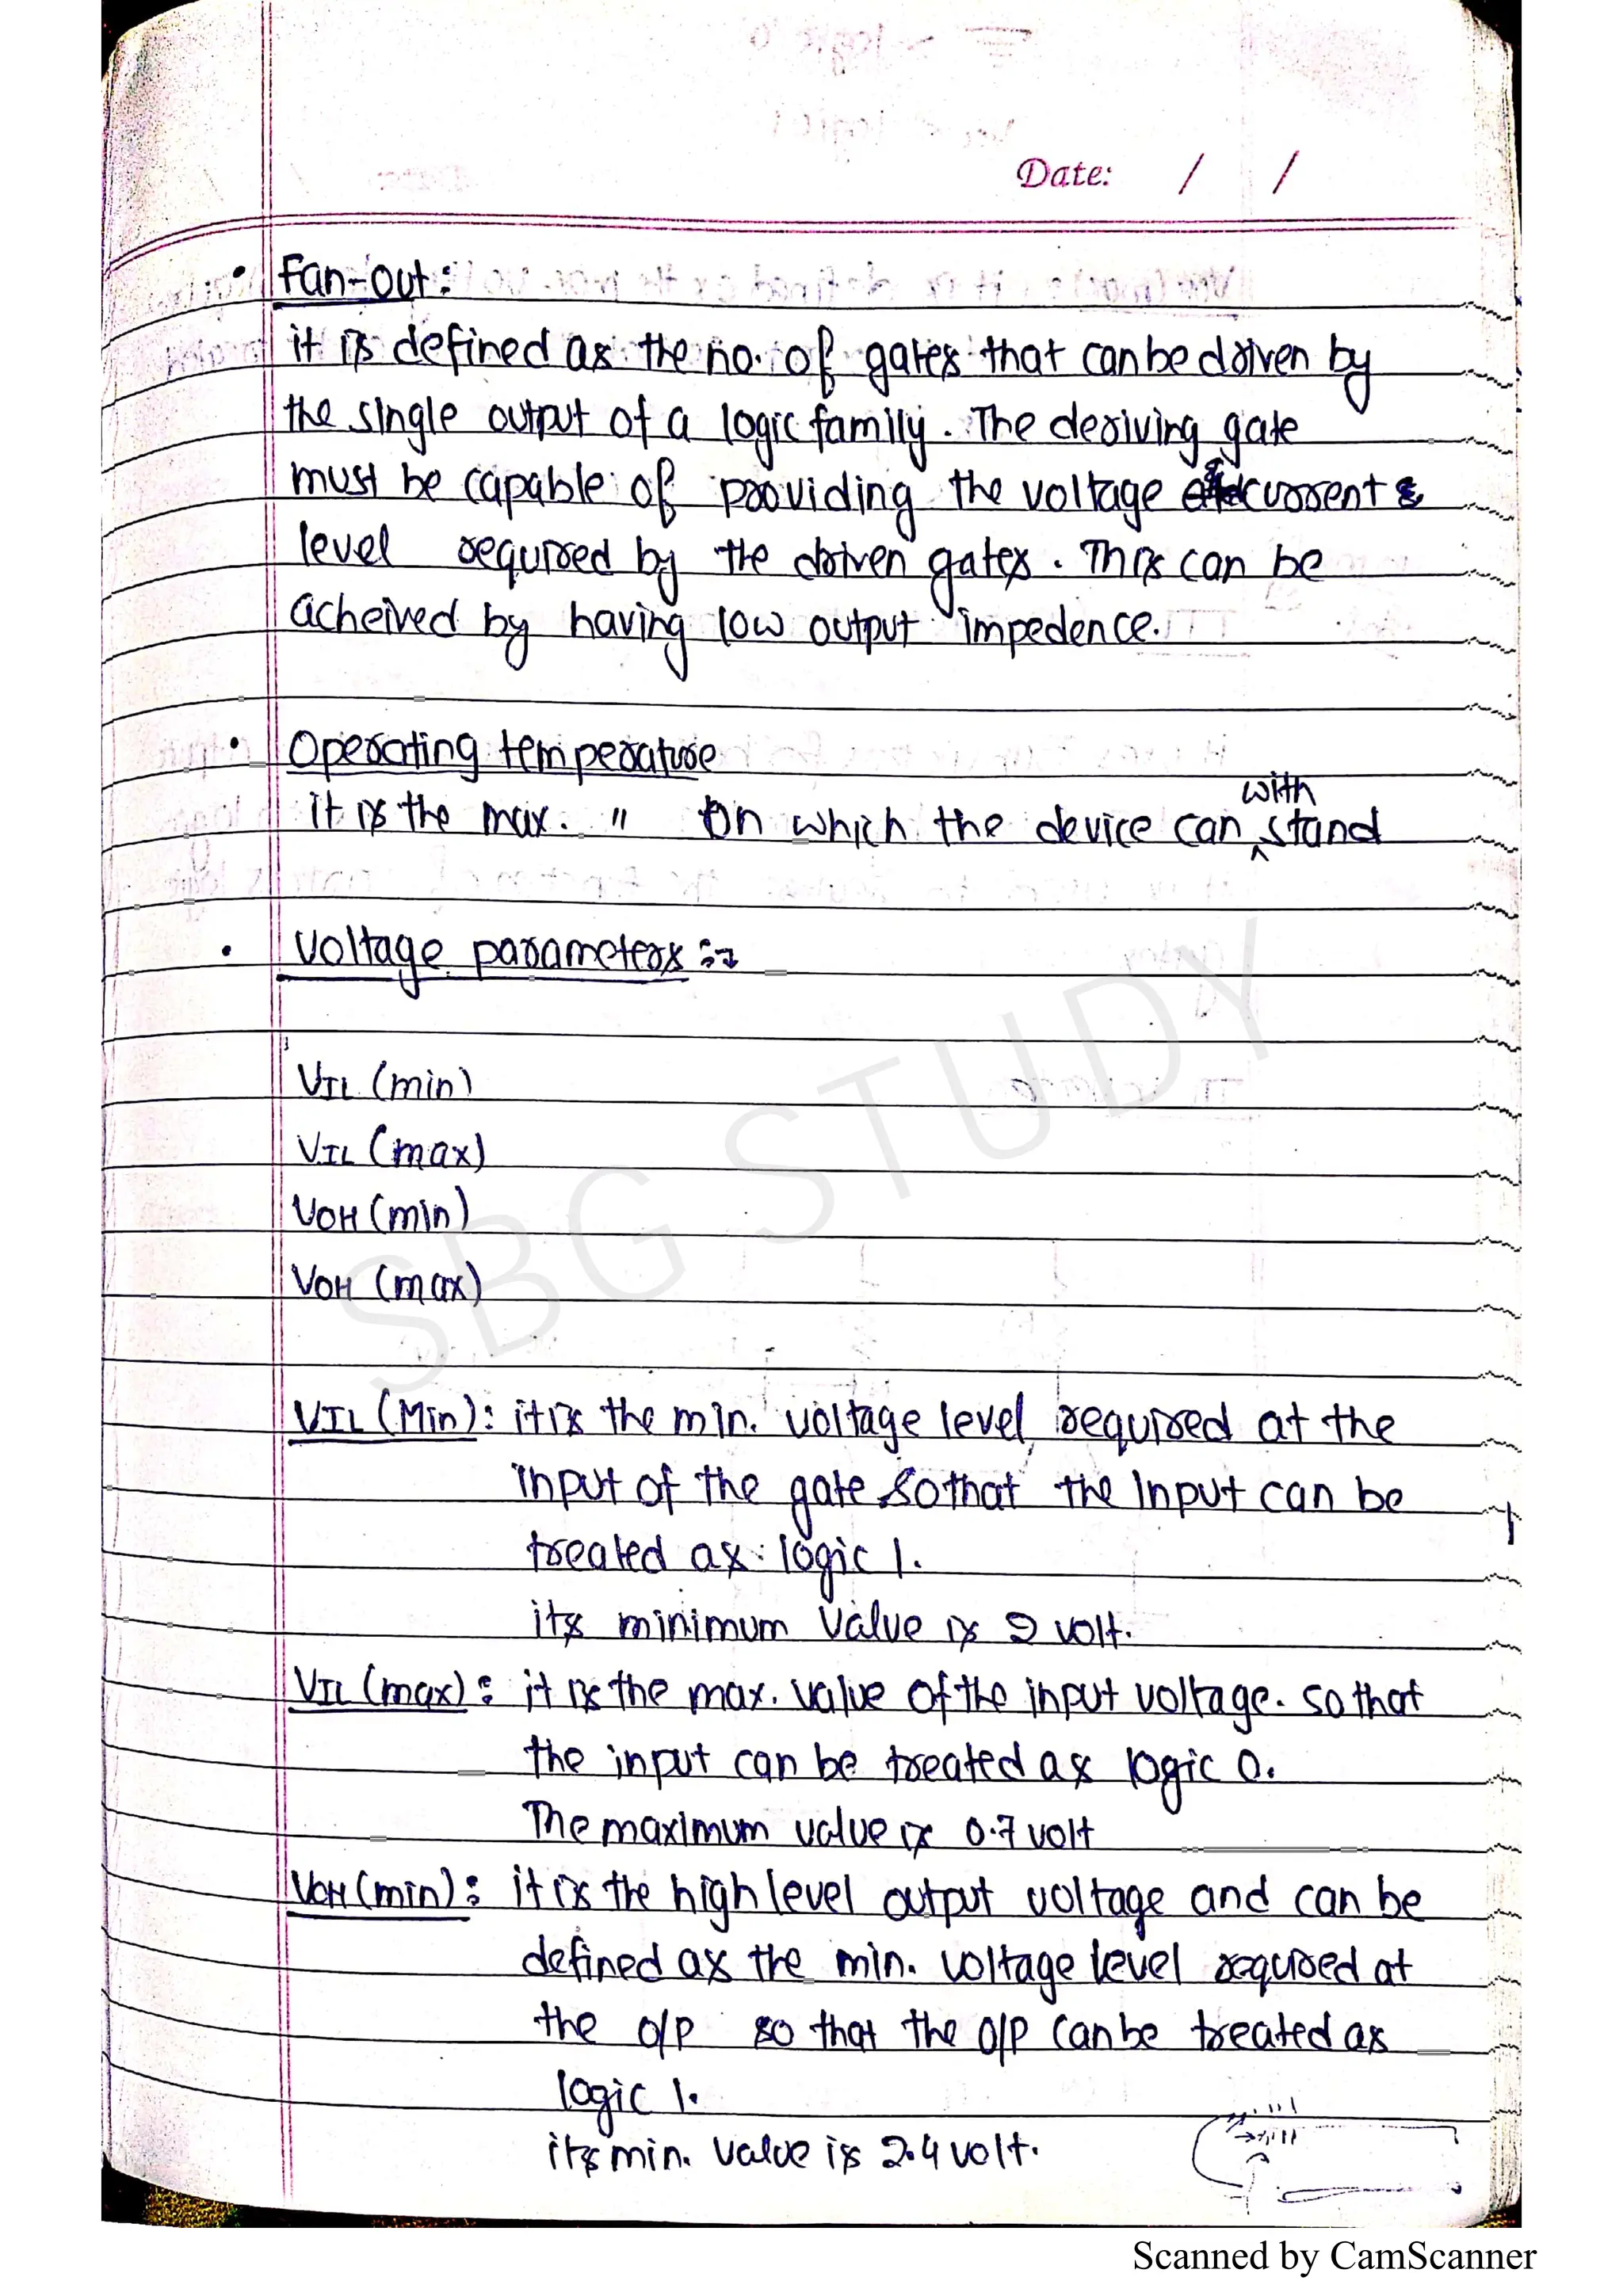 Date: / /
• Fan-out:
it is defined as the no. of gates that can be driven by
the single output of a logic family. The deriving gate
must be capable of prooviding the voltage current &
level required by the driven gates. This can be
acheived by having low output impedence.
• Operating temperature
it is the max. " on which the device can withstand
• Voltage parameters :→
VIL (min)
VIL (max)
VOH (min)
VOH (max)
VIL (Min): it is the min. voltage level required at the
input of the gate so that the input can be
treated as logic 1.
its minimum value is 2 volt.
VIL (max): it is the max. value of the input voltage. so that
the input can be treated as logic 0.
The maximum value is 0.7 volt
VOH (min): it is the high level output voltage and can be
defined as the min. voltage level required at
the o/p so that the o/p can be treated as
logic 1.
its min. value is 2.4 volt.
SBG STUDY
Scanned by CamScanner